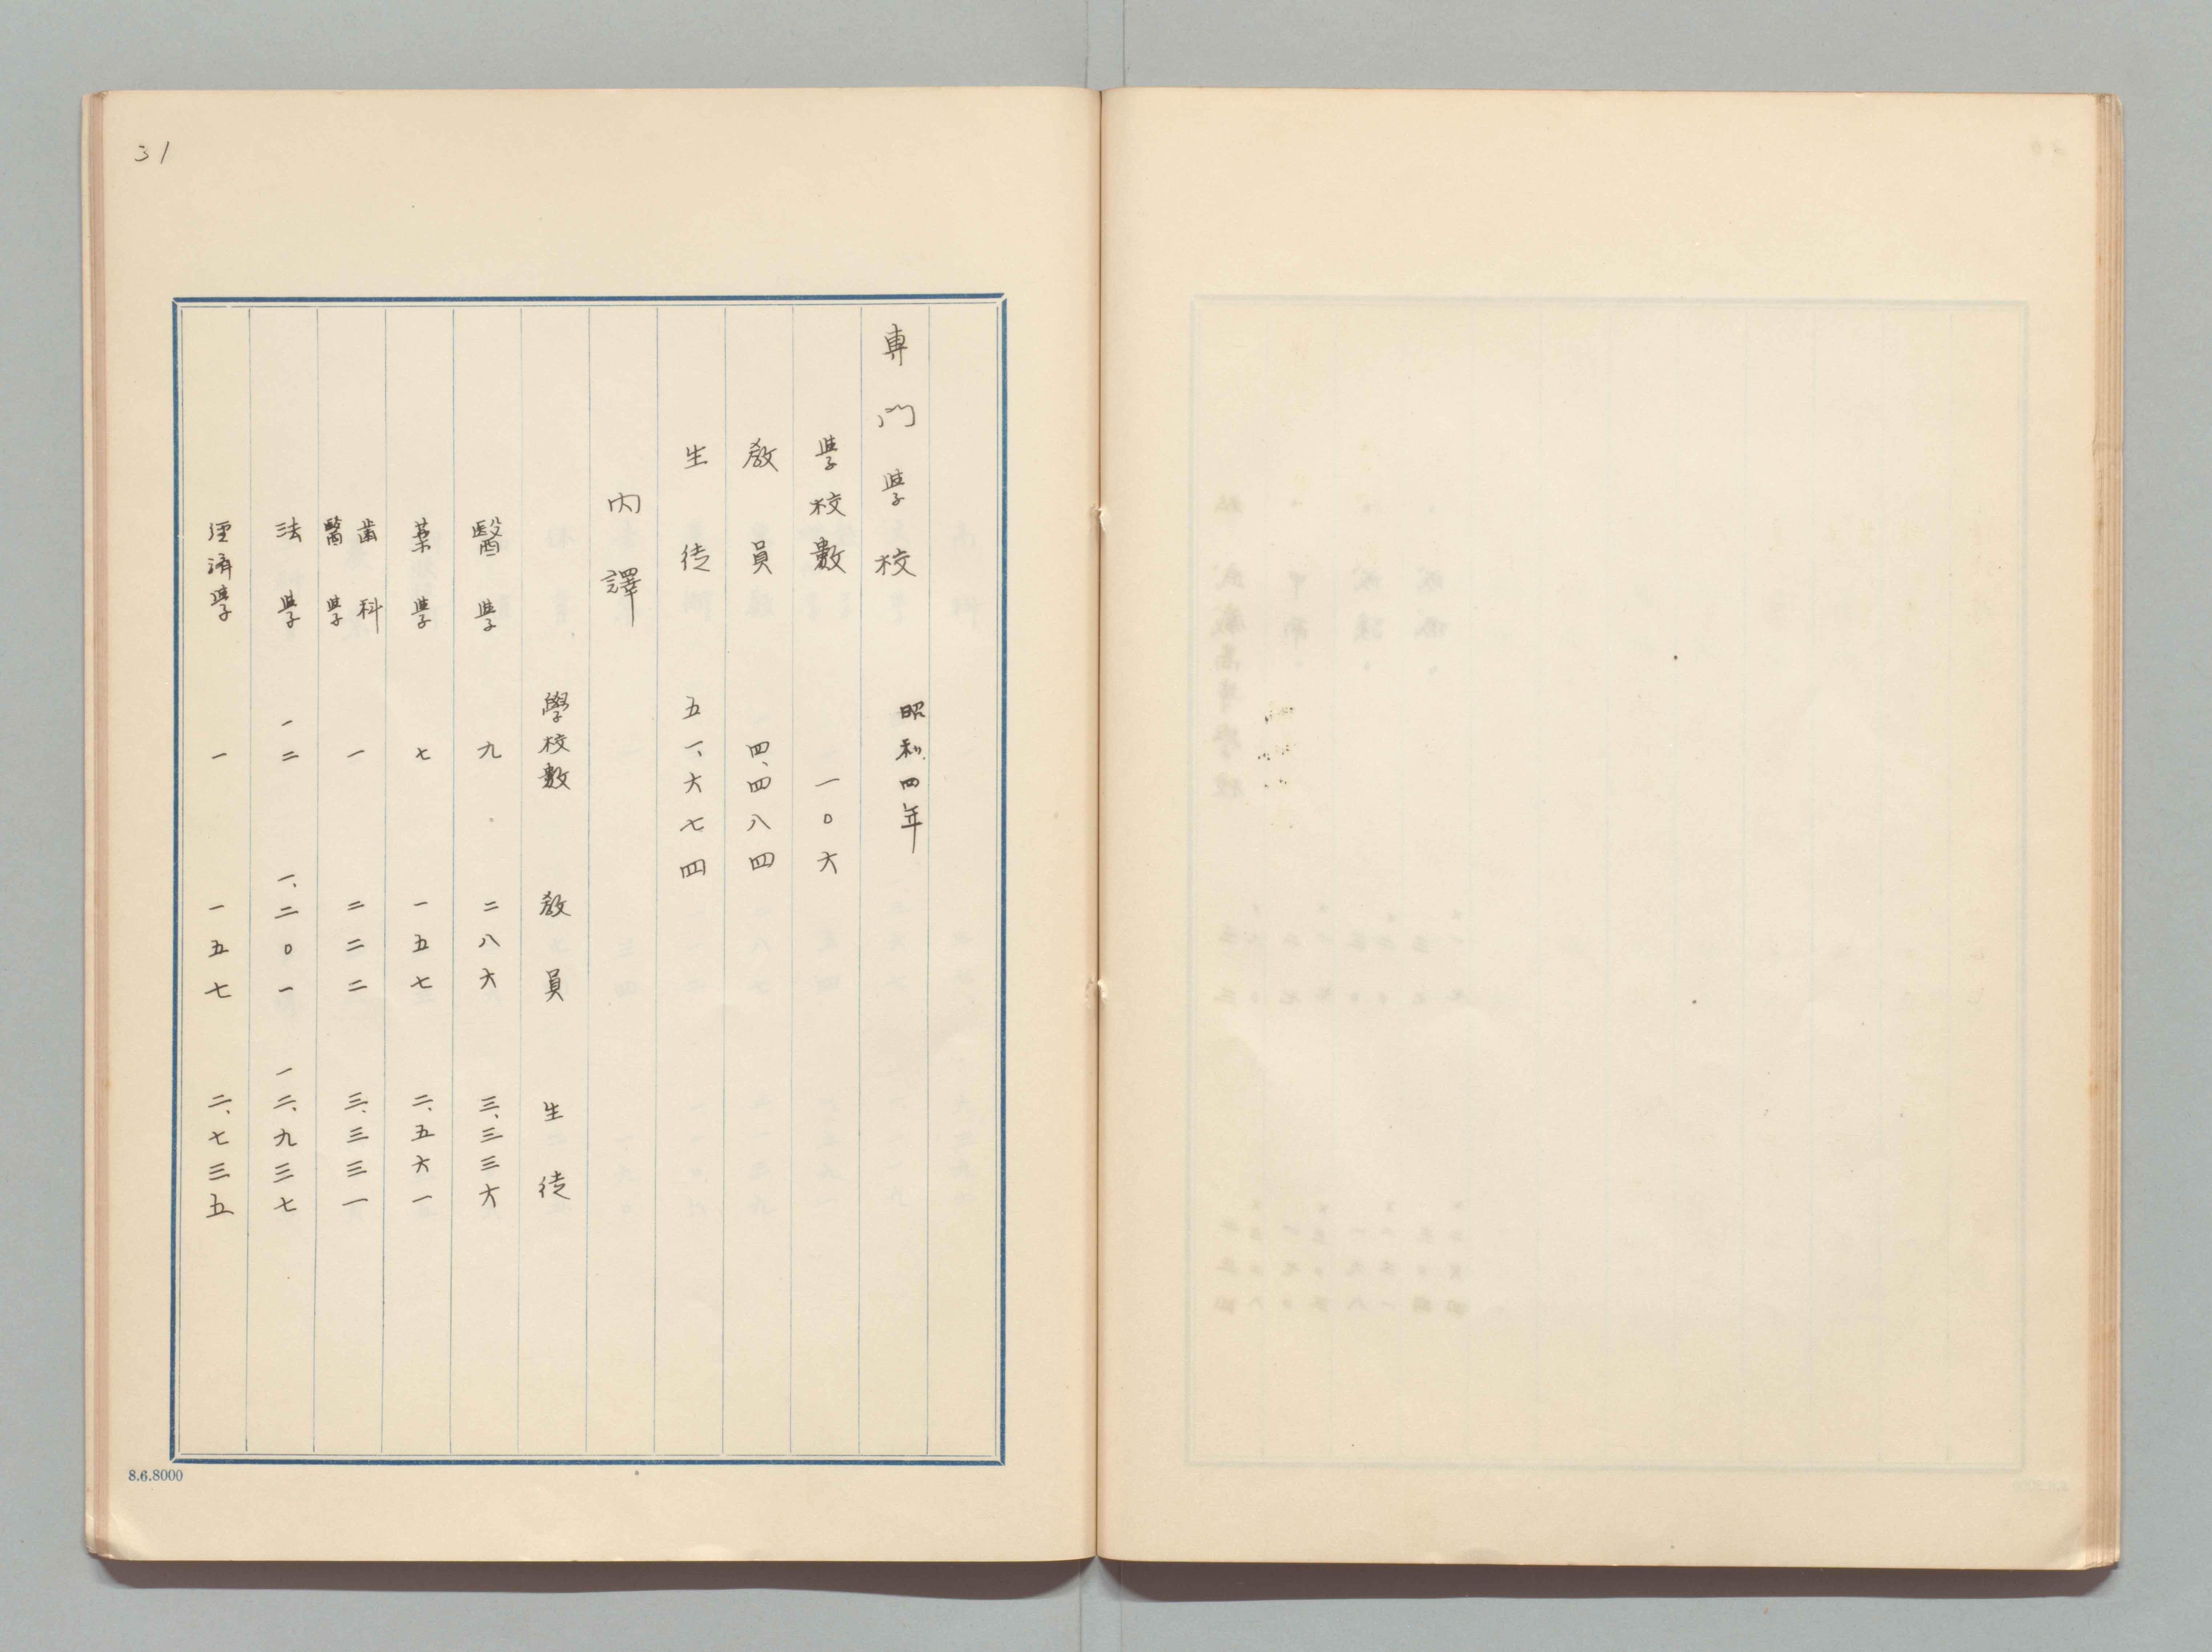 31
専門學校
昭和四年
學校數 一〇六
教員 四、四八四
生徒 五一、六七四
内譯
學校數 教員 生徒
醫學 九 二八六 三、三三六
薬學 七 一五七 二、五六一
歯科醫學 一 二二二 三、三三一
法學 一二 一、二〇一 一二、九三七
経済學 一 一五七 二、七三五
8.6.8000